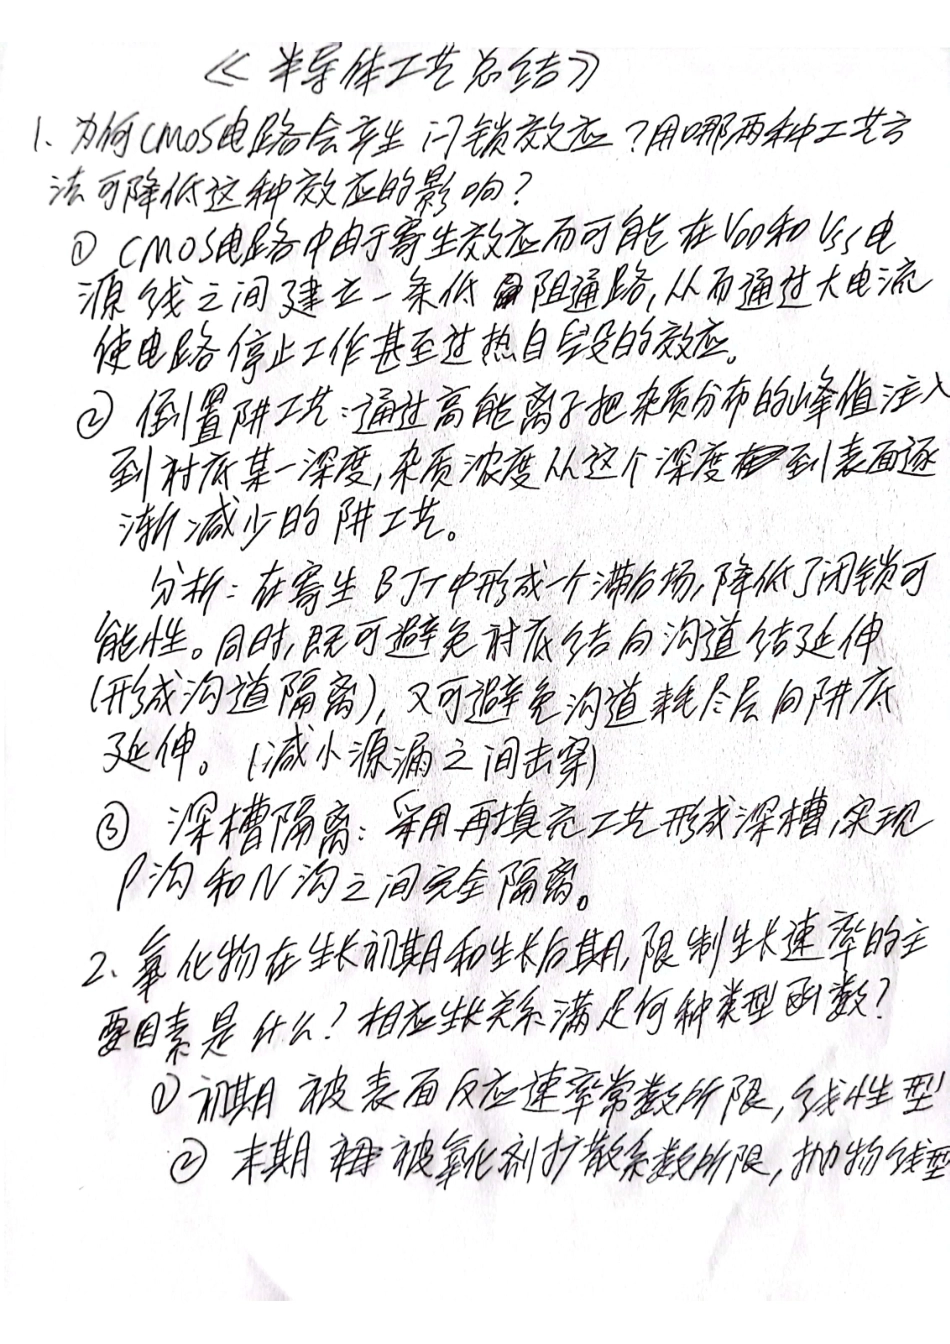 《半导体工艺总结》
1、为何CMOS电路会产生闩锁效应？用哪两种工艺方
法可降低这种效应的影响？
① CMOS电路中由于寄生效应而可能在VDD和VSS电
源线之间建立一条低阻通路，从而通过大电流
使电路停止工作甚至过热自毁的效应。
② 倒置阱工艺：通过高能离子把杂质分布的峰值注入
到衬底某一深度，杂质浓度从这个深度到表面逐
渐减少的阱工艺。
分析：在寄生BJT中形成一个滞后场，降低了闭锁可
能性。同时，既可避免衬底结向沟道结延伸
（形成沟道隔离），又可避免沟道耗尽层向阱底
延伸。（减小源漏之间击穿）
③ 深槽隔离：采用再填充工艺形成深槽，实现
P沟和N沟之间完全隔离。
2、氧化物在生长初期和生长后期，限制生长速率的主
要因素是什么？相应生长关系满足何种类型函数？
① 初期被表面反应速率常数所限，线性型
② 末期被氧化剂扩散系数所限，抛物线型